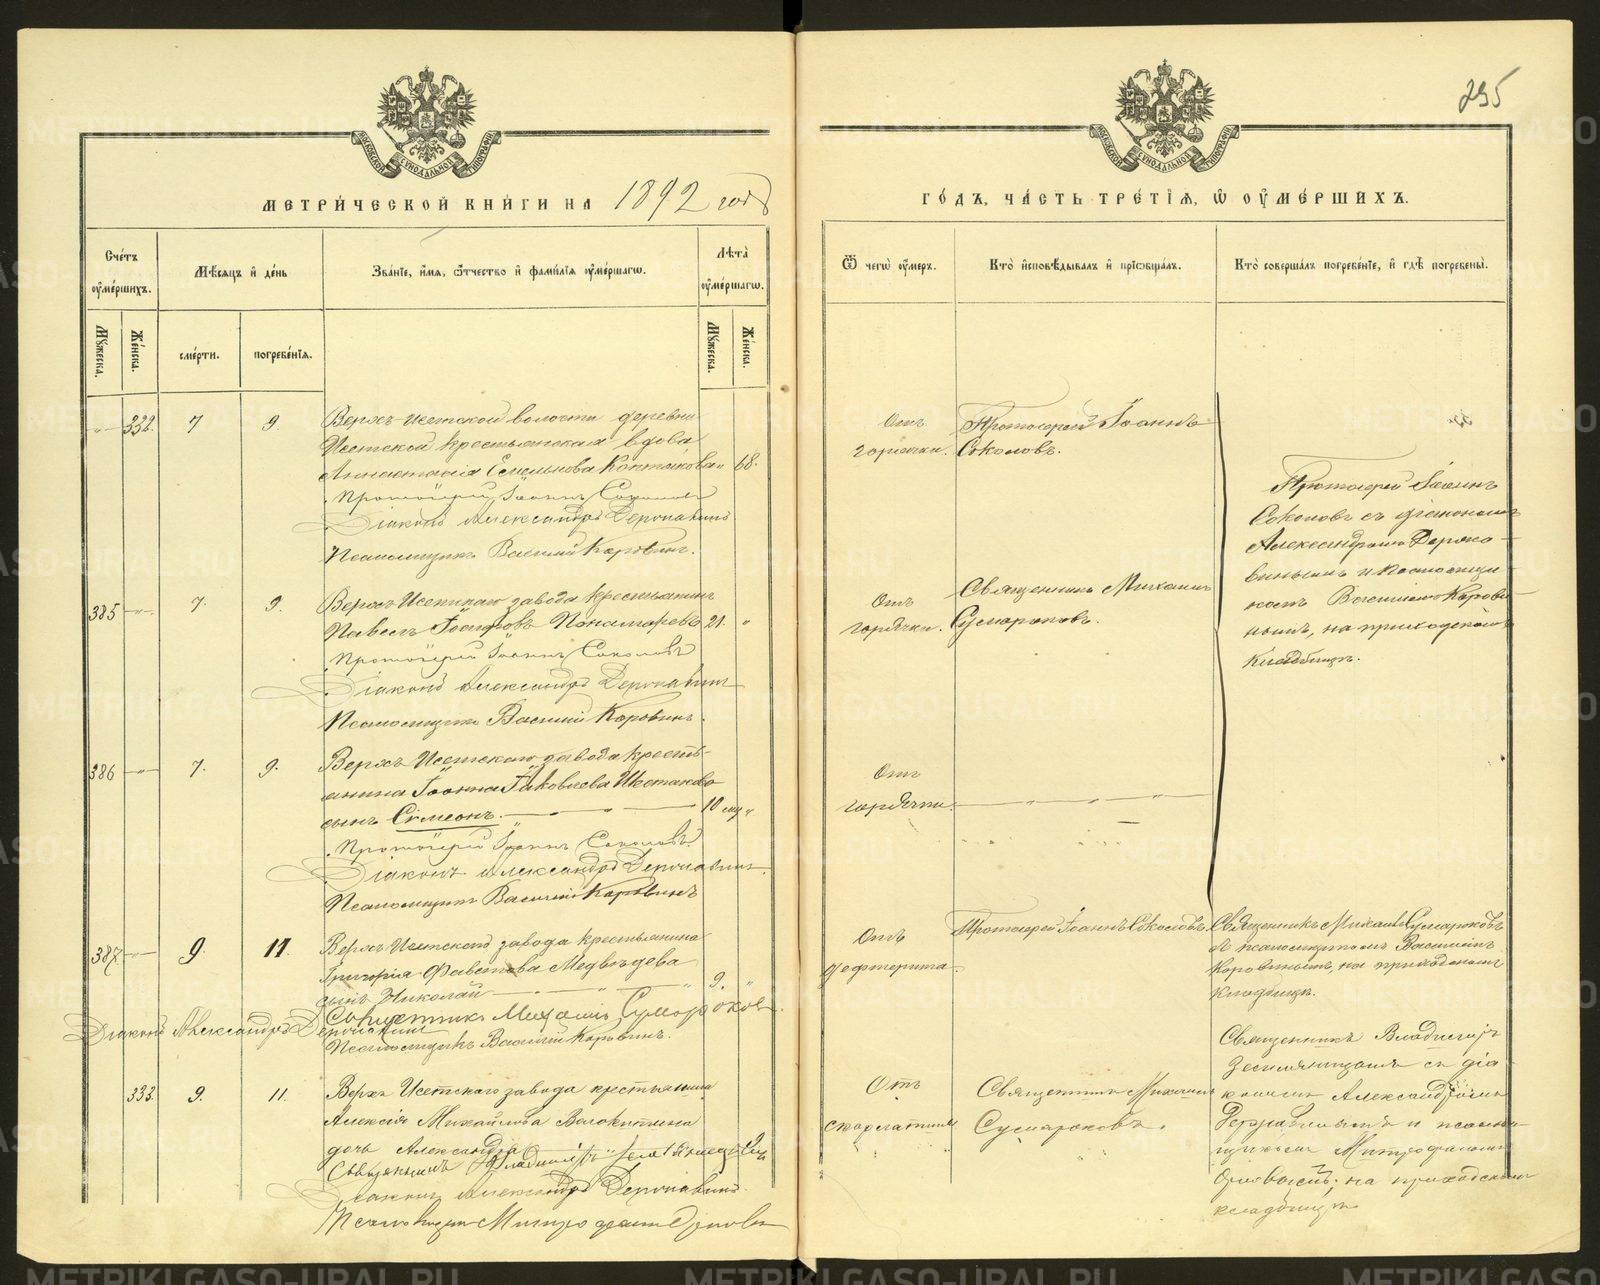 295
МОСКОВСКОЙ СѴНОДАЛЬНОЙ ТИПОГРАФІИ
МОСКОВСКОЙ СѴНОДАЛЬНОЙ ТИПОГРАФІИ
МЕТРИ́ЧЕСКОЙ КНИ́ГИ НА 1892 годъ
ГО́ДЪ, ЧА́СТЬ ТРЕ́ТІЯ, Ѡ ОУ҆МЕ́РШИХЪ.
Сче́тъ оу҆ме́ршихъ.
Мѣ́сяцъ и҆ де́нь
Зва́ніе, и҆́мя, ѻ҆́тчество и҆ фами́лія оу҆ме́ршагѡ.
Лѣта̀ оу҆ме́ршагѡ.
Ѿ чегѡ̀ оу҆́меръ.
Кто̀ и҆сповѣ́дывалъ и҆ прїѡбща́лъ.
Кто̀ соверша́лъ погребе́ніе, и҆ гдѣ̀ погребены̀.
Мꙋ́жеска.
Же́нска.
сме́рти.
погребе́нія.
Мꙋ́жеска.
Же́нска.
332. 7 9.
Верхъ-Исетской волости деревни
Исетской крестьянская вдова
Анастасія Емельянова Коптякова 68.
Протоіерей Іоаннъ Соколовъ
Діаконъ Александръ Державинъ
Псаломщикъ Василій Коровинъ.
Отъ
горячки.
Протоіерей Іоаннъ
Соколовъ.
Протоіерей Іоаннъ
Соколовъ съ діакономъ
Александромъ Держа-
винымъ и псаломщи-
комъ Василіемъ Корови-
нымъ, на приходскомъ
кладбищѣ.
385 7. 9.
Верхъ-Исетскаго завода крестьянинъ
Павелъ Іоасафовъ Пономаревъ 21. "
Протоіерей Іоаннъ Соколовъ
Діаконъ Александръ Державинъ
Псаломщикъ Василій Коровинъ.
Отъ
горячки.
Священникъ Михаилъ
Сумароковъ.
386 7. 9.
Верхъ-Исетскаго завода кресть-
янина Іоанна Іаковлева Шестакова
сынъ Сѵмеонъ. 10 "
Протоіерей Іоаннъ Соколовъ
Діаконъ Александръ Державинъ.
Псаломщикъ Василій Коровинъ
Отъ
горячки
387 9. 11.
Верхъ-Исетскаго завода крестьянина
Григорія Медвѣдева
сынъ Николай 9. "
Священникъ Михаилъ Сумароковъ.
Діаконъ Александръ Державинъ
Псаломщикъ Василій Коровинъ.
Отъ
дефтерита
Протоіерей Іоаннъ Соколовъ.
Священникъ Михаилъ Сумароковъ
съ псаломщикомъ Василіемъ
Коровинымъ, на приходскомъ
кладбищѣ.
333. 9. 11.
Верхъ Исетскаго завода крестьянина
Алексія Михайлова Волокитина
дочь Александра
Священникъ Владиміръ
Діаконъ Александръ Державинъ.
Псаломщикъ Митрофанъ
Отъ
скарлатины
Священникъ Михаилъ
Сумароковъ.
Священникъ Владиміръ
съ діа-
кономъ Александромъ
Державинымъ и псалом-
щикомъ Митрофаномъ
на приходскомъ
кладбищѣ
METRIKI.GASO-URAL.RU